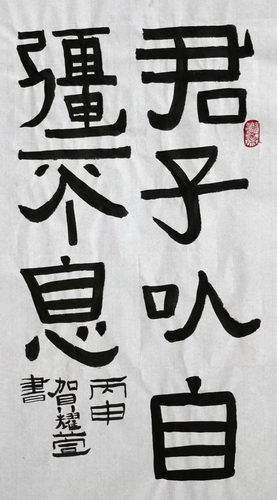 君子以自
彊不息
丙申
賀耀萱
書